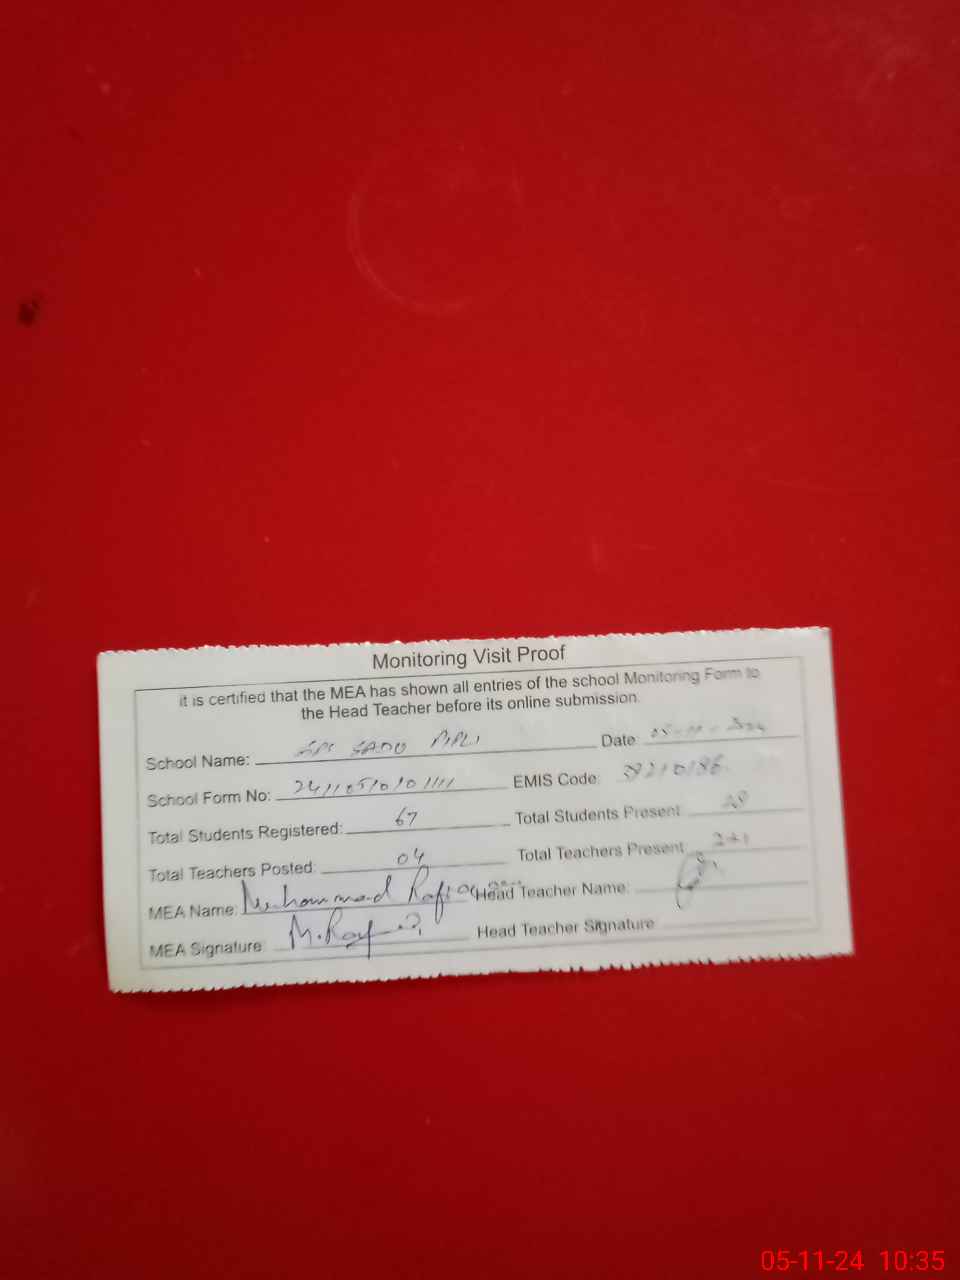 Monitoring Visit Proof
it is certified that the MEA has shown all entries of the school Monitoring Form to
the Head Teacher before its online submission.
School Name: SADU PIPLI Date: 05-11-2024
School Form No: EMIS Code: 39210186
Total Students Registered: 67 Total Students Present: 28
Total Teachers Posted: 04 Total Teachers Present 2+1
MEA Name: Muhammad Rafi Head Teacher Name:
MEA Signature: M.Rafi Head Teacher Signature
05-11-24 10:35